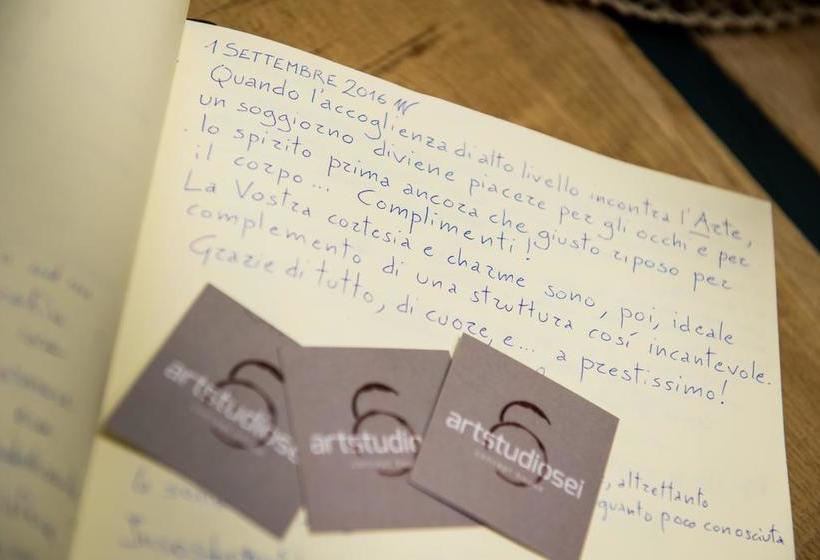 1 SETTEMBRE 2016
Quando l'accoglienza di alto livello incontra l'Arte,
un soggiorno diviene piacere per gli occhi e per
lo spirito prima ancora che giusto riposo per
il corpo... Complimenti!
La Vostra cortesia e charme sono, poi, ideale
complemento di una struttura così incantevole.
Grazie di tutto, di cuore, e... a prestissimo!
artstudiosei
artstudio
artstudiosei
6
6
6
, altrettanto
quanto poco conosciuta